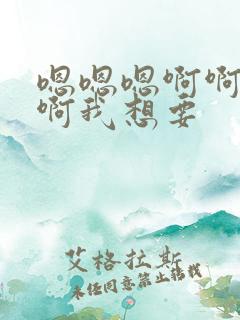 嗯嗯嗯啊啊
啊我想要
艾格拉斯
未经同意禁止转载